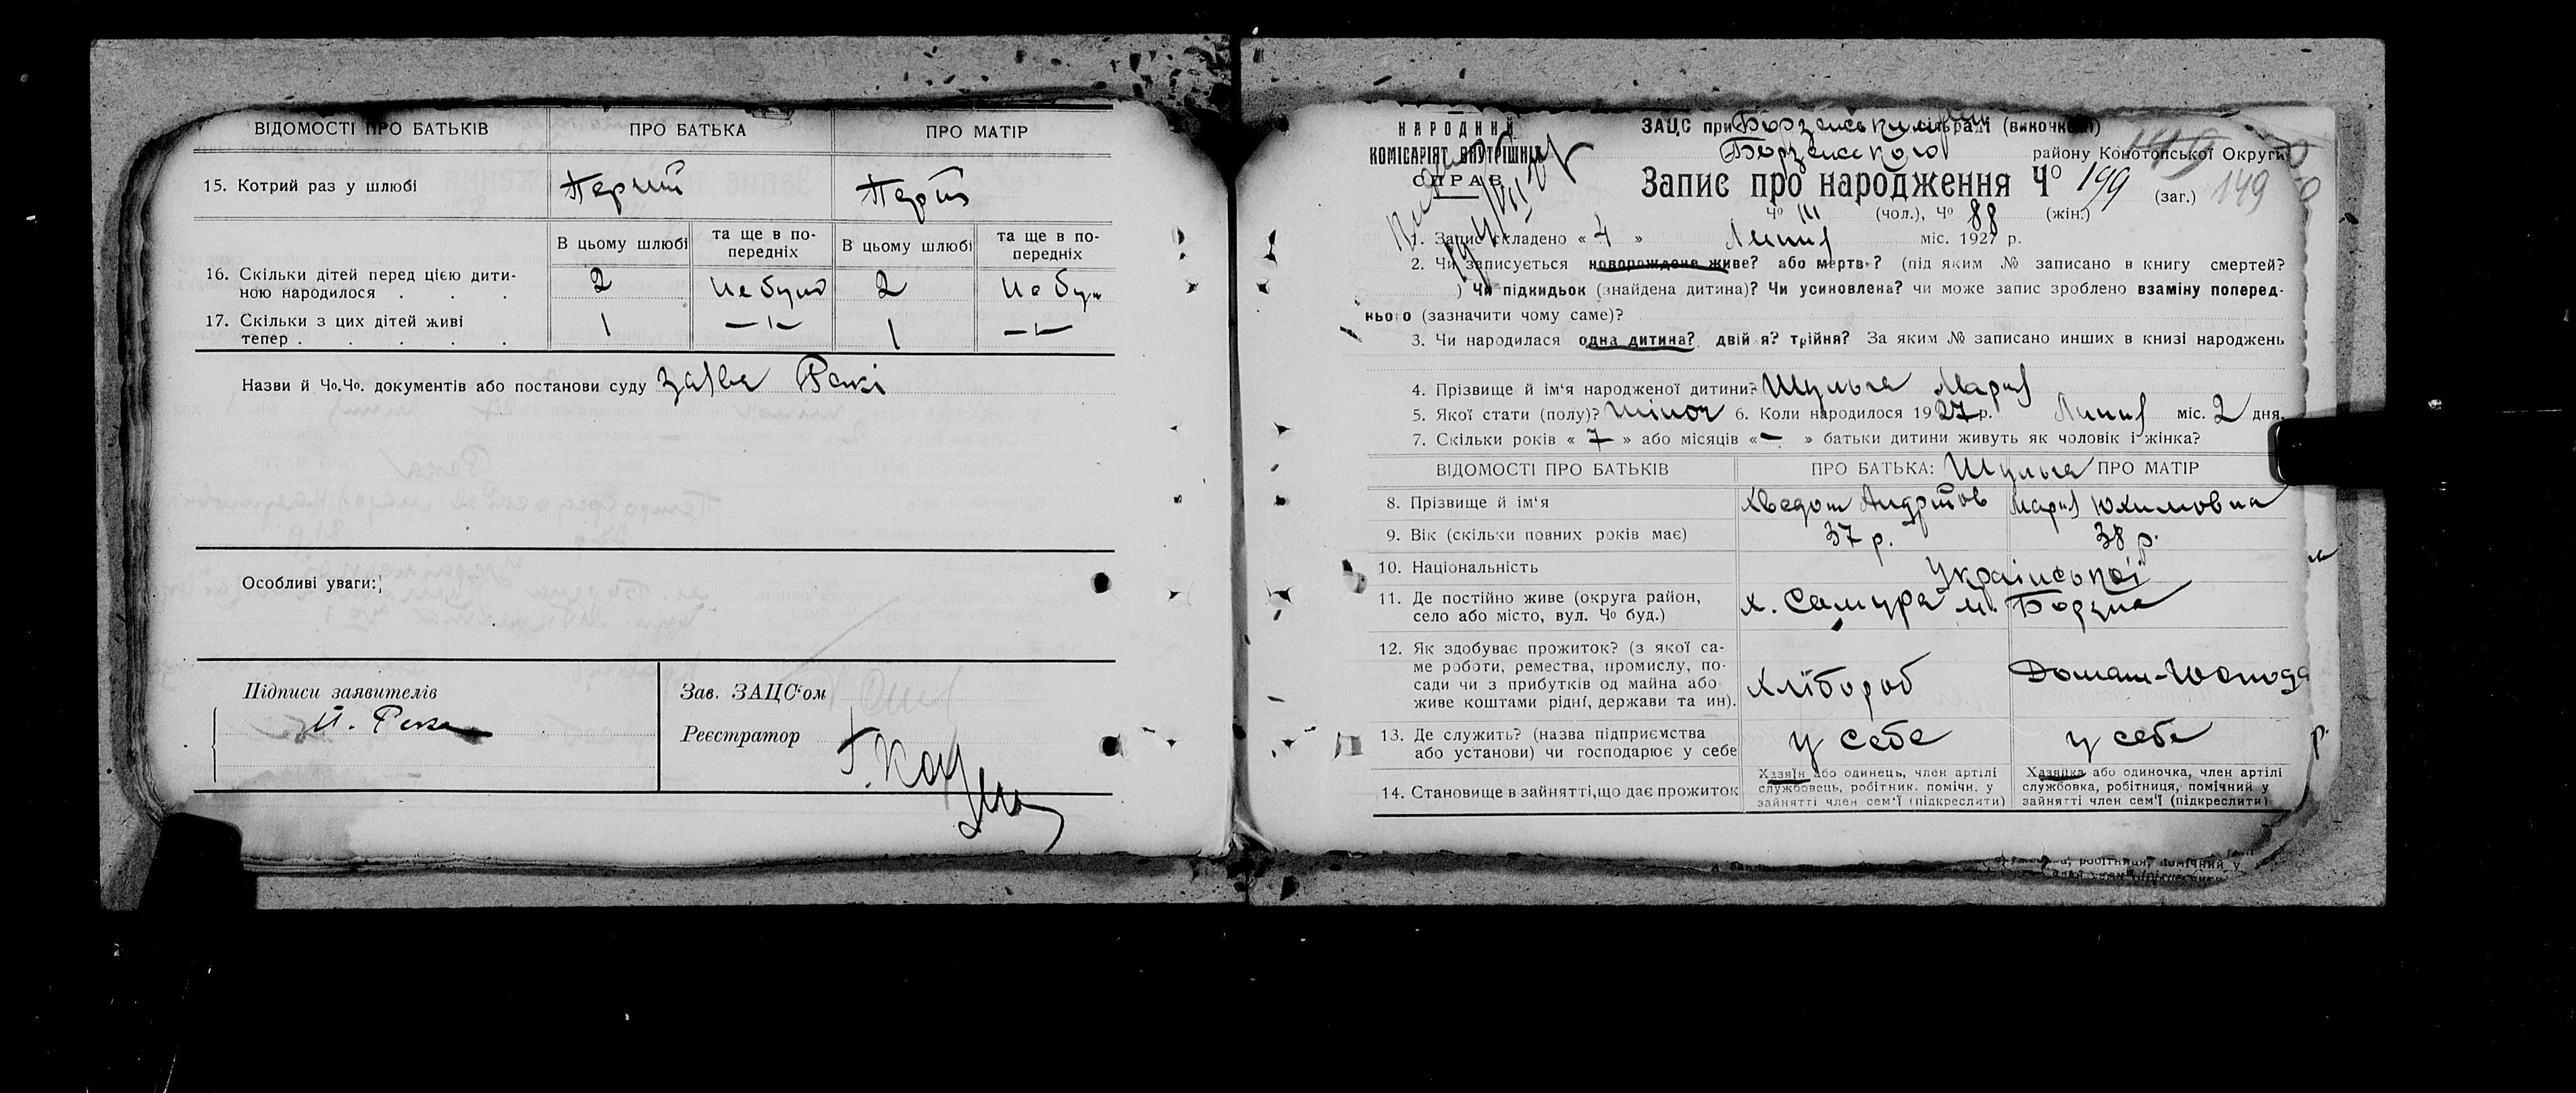 ВІДОМОСТІ ПРО БАТЬКІВ ПРО БАТЬКА ПРО МАТІР
15. Котрий раз у шлюбі
В цьому шлюбі та ще в по-передніх В цьому шлюбі та ще в по-передніх
16. Скільки дітей перед цією дити-
ною народилося . . . 2 2
17. Скільки з цих дітей живі
тепер . . . . . 1 1
Назви й Чо.Чо. документів або постанови суду
Особливі уваги:
Підписи заявителів
Зав. ЗАЦС'ом
Реєстратор
НАРОДНИЙ
КОМІСАРІЯТ ВНУТРІШНІХ
СПРАВ
ЗАЦС при Борзенський
Борзенського району Конотопської Округи
Запис про народження Чо 199 (заг.) 149
Чо 111 (чол.), Чо 88 (жін.)
1. Запис складено « 4 » Липня міс. 1927 р.
2. Чи записується новорождене живе? або мертве? (під яким № записано в книгу смертей?
) Чи підкидьок (знайдена дитина)? Чи усиновлена? чи може запис зроблено взаміну поперед-
нього (зазначити чому саме)?
3. Чи народилася одна дитина? двійня? трійня? За яким № записано инших в книзі народжень
4. Прізвище й ім'я народженої дитини? Шульга Мария
5. Якої стати (полу)? жіноч 6. Коли народилося 1927 р. Липня міс. 2 дня.
7. Скільки років « 7 » або місяців « — » батьки дитини живуть як чоловік і жінка?
ВІДОМОСТІ ПРО БАТЬКІВ ПРО БАТЬКА: Шульга ПРО МАТІР
8. Прізвище й ім'я Хведот Мария Юхимовна
9. Вік (скільки повних років має) 37 р. 38 р.
10. Національність Української
11. Де постійно живе (округа район,
село або місто, вул. Чо буд.) х. Самура м. Борзна
12. Як здобуває прожиток? (з якої са-
ме роботи, ремества, промислу, по-
сади чи з прибутків од майна або
живе коштами рідні, держави та ин). Хлібороб
13. Де служить? (назва підприємства
або установи) чи господарює у себе у себе у себе
14. Становище в зайнятті, що дає прожиток
Хазяїн або одинець, член артілі
службовець, робітник. помічн. у
зайнятті член сем'ї (підкреслити)
Хазяйка або одиночка, член артілі
службовка, робітниця, помічний у
зайнятті член сем'ї (підкреслити)